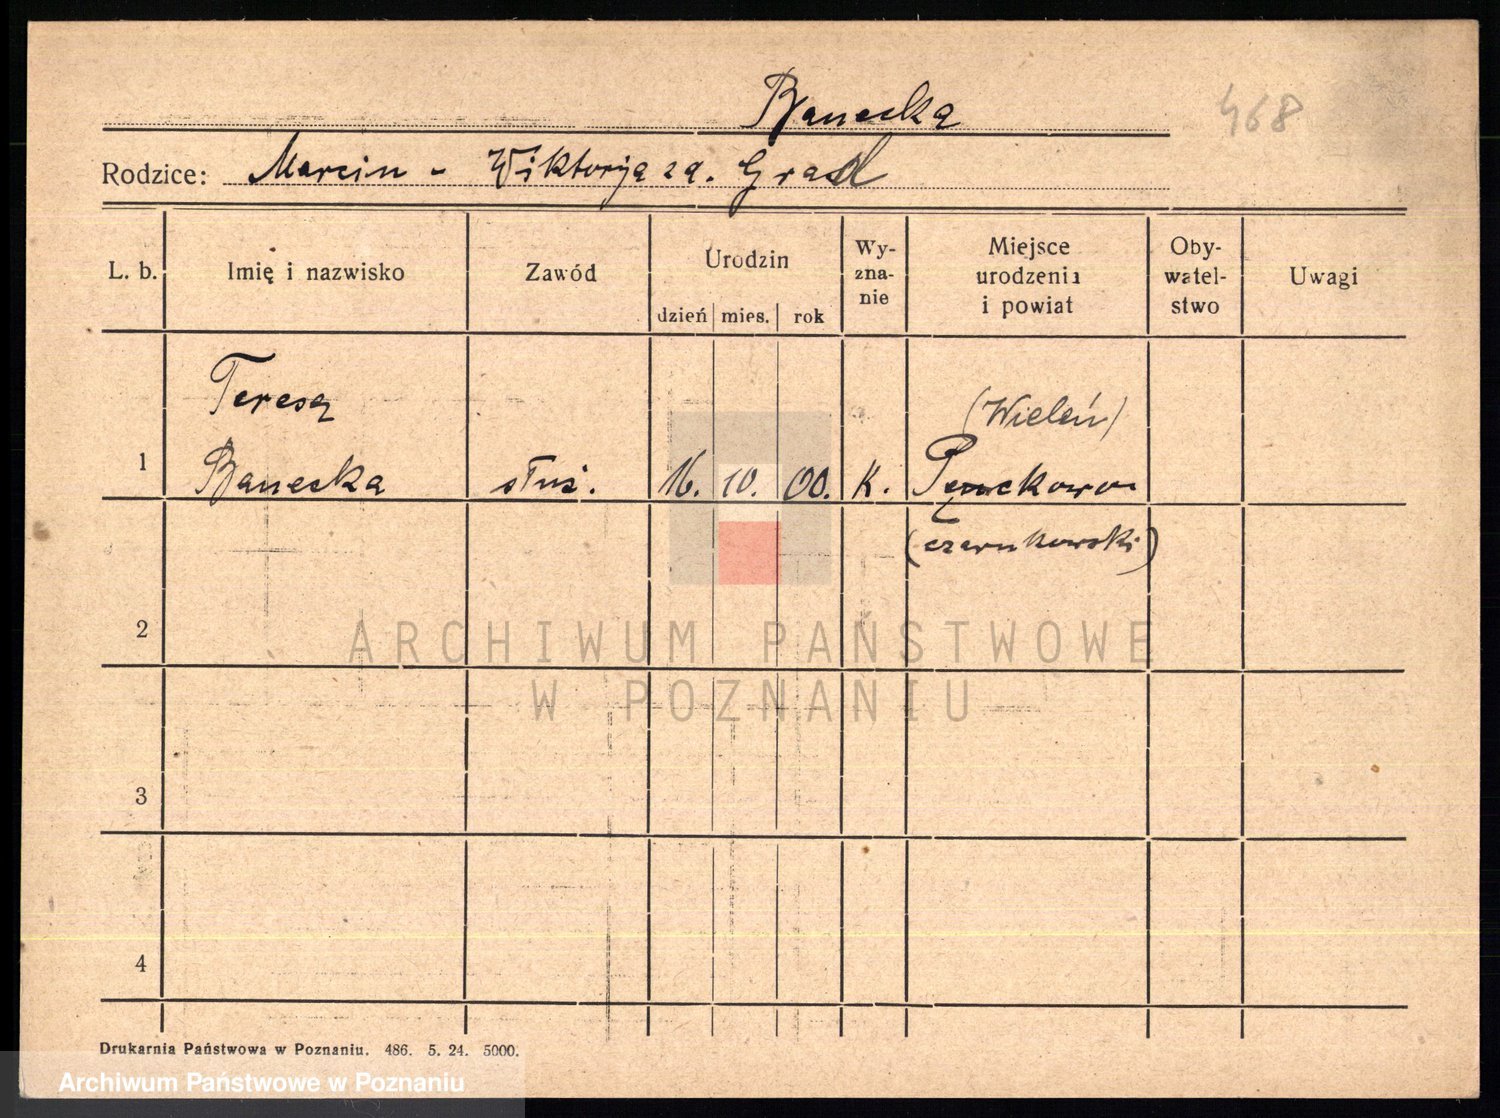 Banecka
468
Rodzice: Marcin - Wiktorja za. Grad
L. b. Imię i nazwisko Zawód Urodzin dzień mies. rok Wy-zna-nie Miejsce urodzenia i powiat Oby-watel-stwo Uwagi
Teresa
(Wieleń)
1 Banecka służ. 16. 10. 00. K. Pęckowo
(czarnkowski)
2
ARCHIWUM PAŃSTWOWE
W POZNANIU
3
4
Drukarnia Państwowa w Poznaniu. 486. 5. 24. 5000.
Archiwum Państwowe w Poznaniu